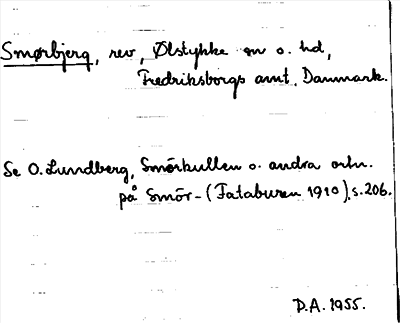 Smørbjerg, rev, Ølstykke sn o. hd,
Fredriksborgs amt, Danmark.
Se O. Lundberg, Smörkullen o. andra ortn.
på Smör- (Fataburen 1910), s. 206.
D.A. 1955.